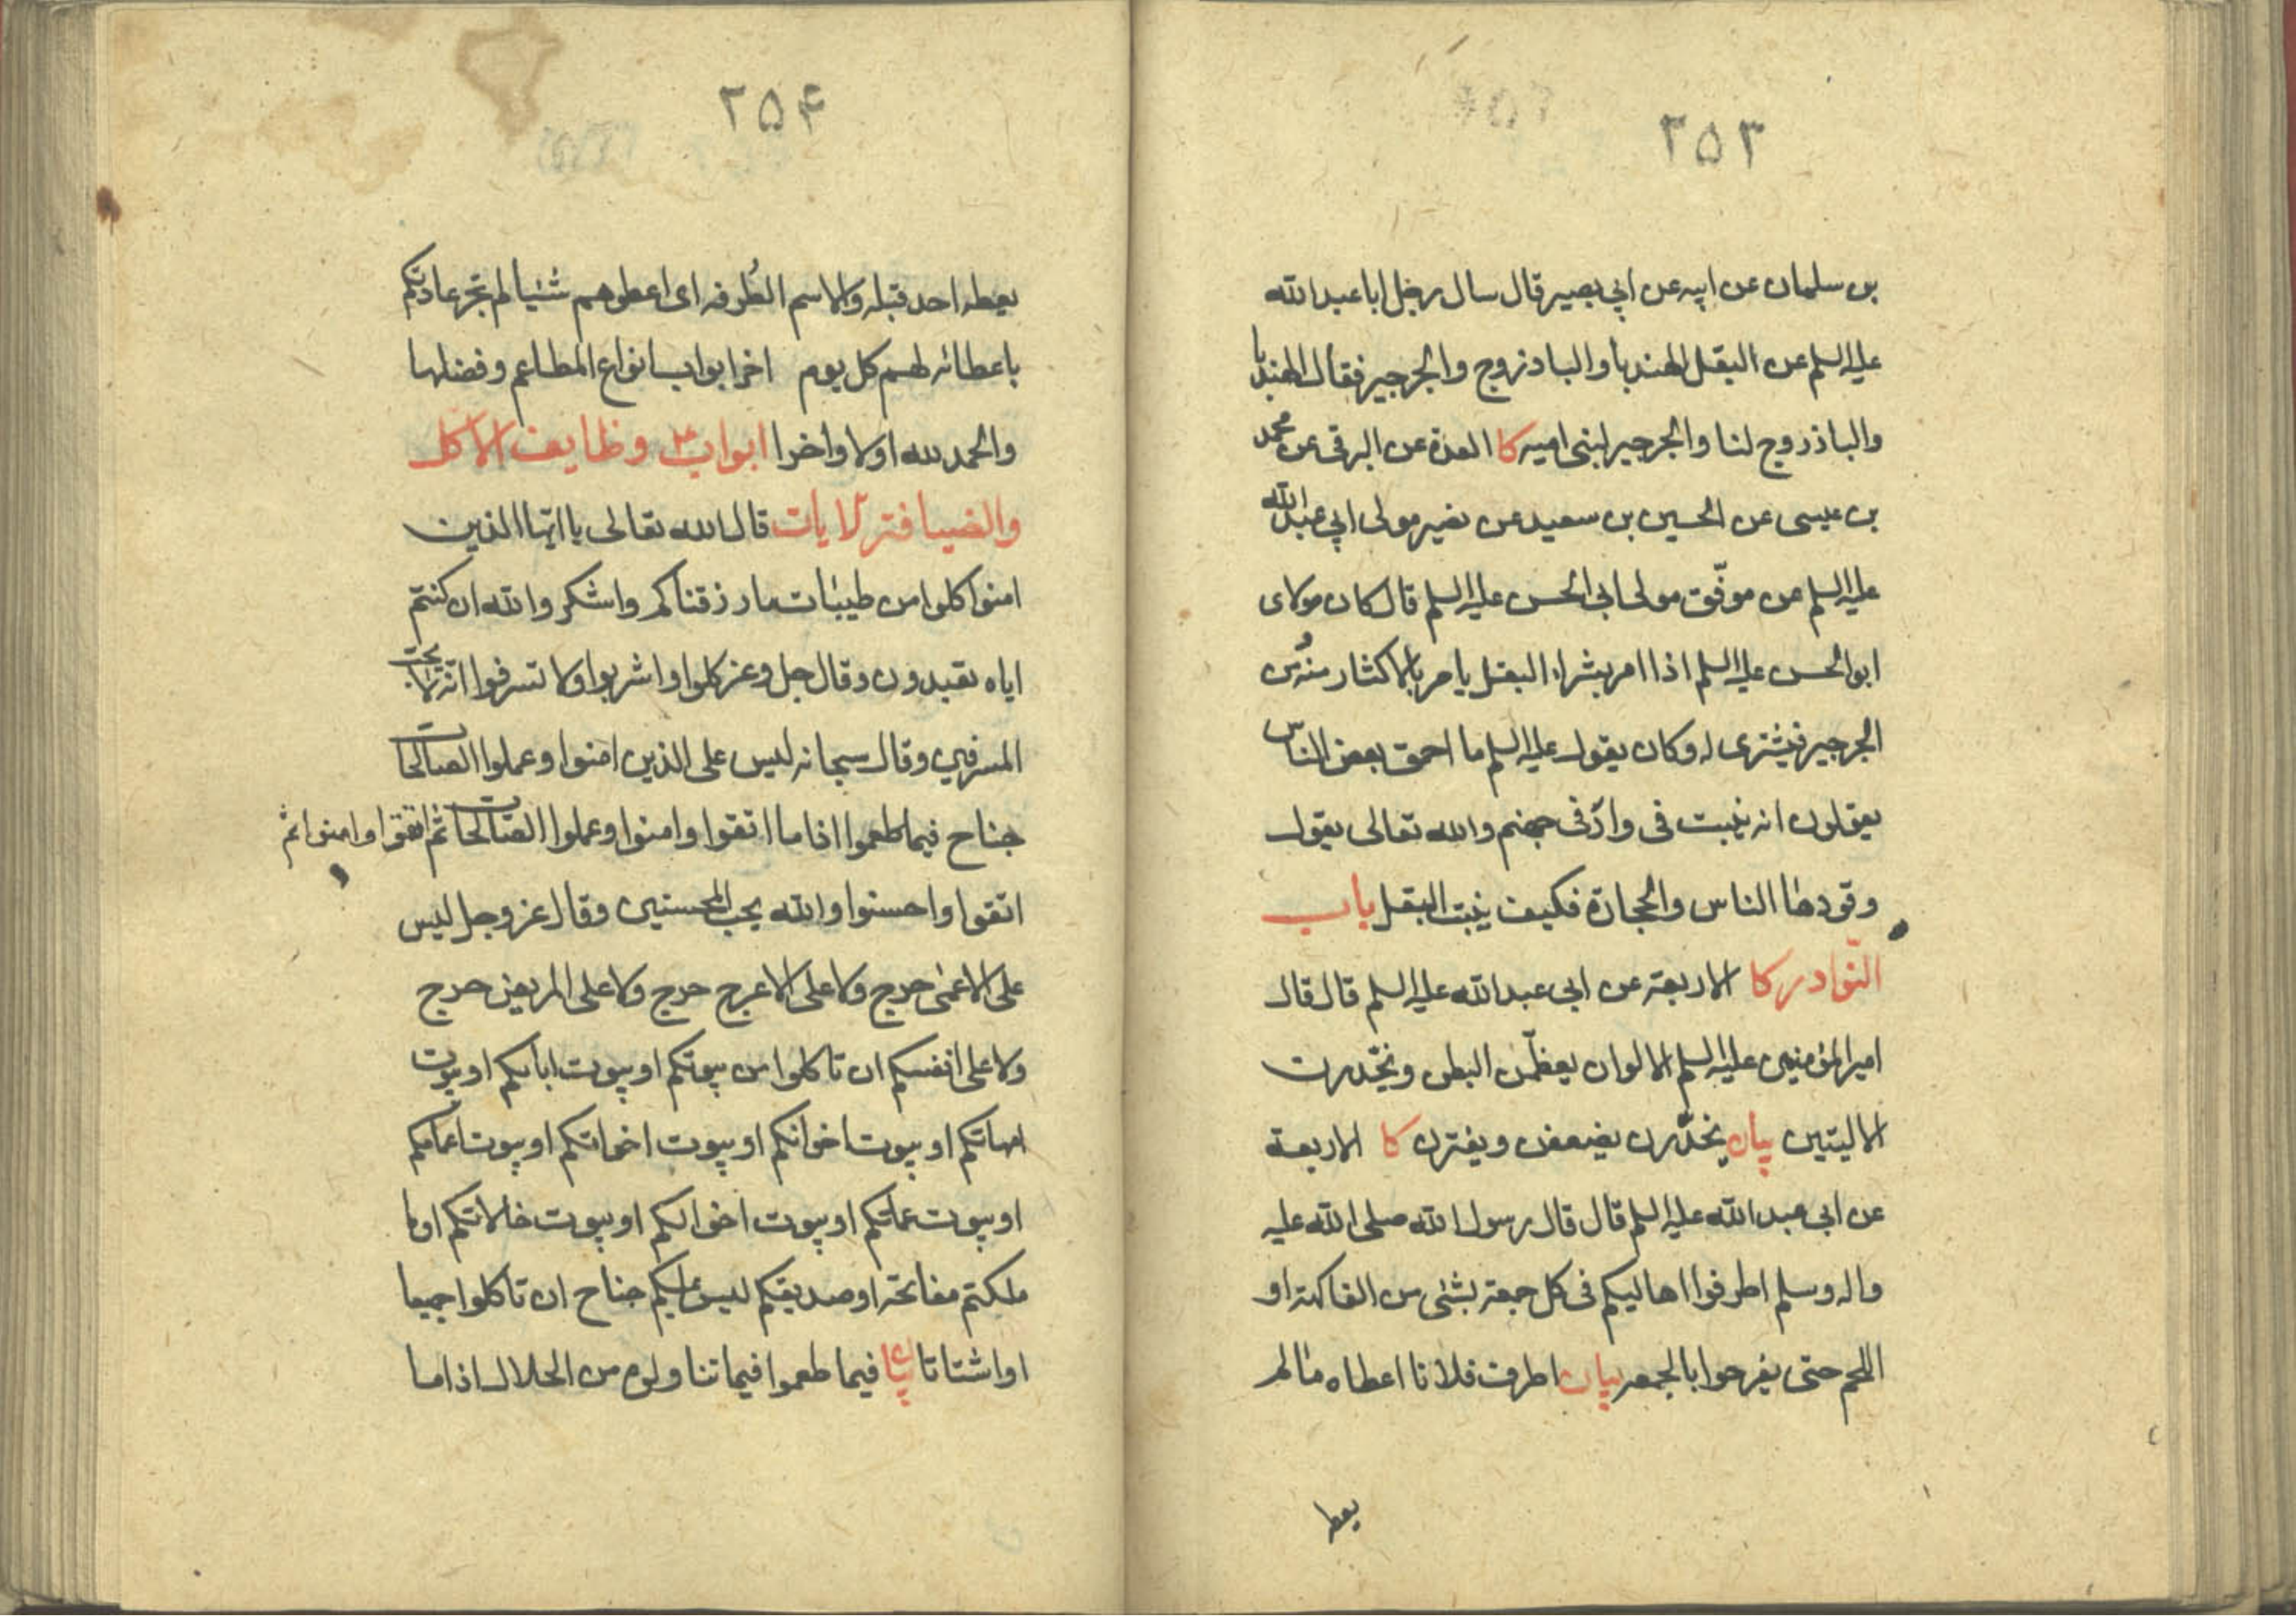 ۲۵۳
بن سلمان عن ابيه عن ابي بصير قال سال رجل ابا عبد الله
عليه السلم عن البقل الهندبا والباذروج والجرجير فقال الهندبا
والباذروج لنا والجرجير لبني اميه كا العدة عن البرقي عن محمد
بن عيسى عن الحسين بن سعيد عن نصير مولى ابي عبد الله
عليه السلم عن موفّق مولى ابي الحسن عليه السلم قال كان مولاى
ابو الحسن عليه السلم اذا امر بشراء البقل يامر بالاكثار منه ومن
الجرجير فيشترى له وكان يقول عليه السلم ما احمق بعض الناس
يقولون انه ينبت في واد في جهنم والله تعالى يقول
وقودها الناس والحجارة فكيف ينبت البقل باب
النّوادر كا الاربعة عن ابي عبد الله عليه السلم قال قال
امير المؤمنين عليه السلم الالوان يعظّمن البطن ويخّدرن
الاليتين بيان يخدّرن يضعفن ويفترن كا الاربعة
عن ابي عبد الله عليه السلم قال قال رسول الله صلى الله عليه
واله وسلم اطرفوا اهاليكم في كل جمعة بشئ من الفاكهة او
اللحم حتى يفرحوا بالجمعه بيان اطرف فلانا اعطاه مالم
يعط
۲۵۴
يعطه احد قبله والاسم الطُرفه اى اعطوهم شيئا لم تجر عادتكم
باعطائه لهم كل يوم اخر ابواب انواع المطاعم وفضلها
والحمد لله اولا واخرا ابواب وظايف الاكل
والضيافة الايات قال الله تعالى يا ايها الذين
امنوا كلوا من طيبات ما رزقناكم واشكروا لله ان كنتم
اياه تعبدون وقال جل وعز كلوا واشربوا ولا تسرفوا انه لا يحب
المسرفين وقال سبحانه ليس على الذين امنوا وعملوا الصالحات
جناح فيما طعموا اذا ما اتقوا وامنوا وعملوا الصالحات ثم اتقوا وامنوا ثم
اتقوا واحسنوا والله يحب المحسنين وقال عز وجل ليس
على الاعمى حرج ولا على الاعرج حرج ولا على المريض حرج
ولا على انفسكم ان تاكلوا من بيوتكم او بيوت ابائكم او بيوت
امهاتكم او بيوت اخوانكم او بيوت اخواتكم او بيوت اعمامكم
او بيوت عماتكم او بيوت اخوالكم او بيوت خالاتكم او ما
ملكتم مفاتحه او صديقكم ليس عليكم جناح ان تاكلوا جميعا
او اشتاتا بيان فيما طعموا فيما تناولوه من الحلال اذا ما